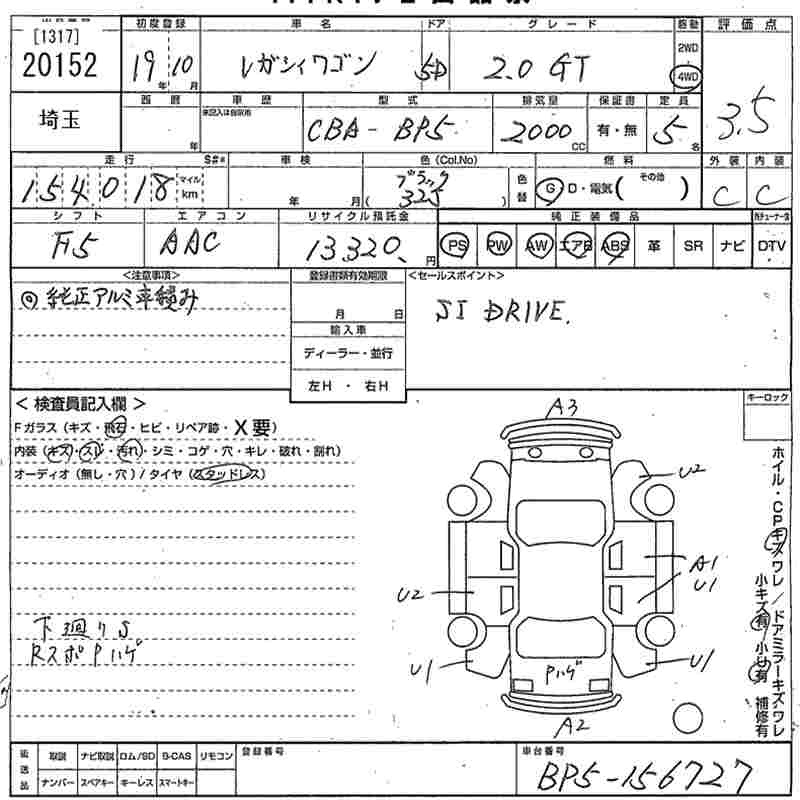 [1317]
20152
初度登録 車名 ドア グレード 駆動 評価点
19年10月 レガシィワゴン 5D 2.0 GT 2WD 4WD 3.5
埼玉
西暦 車歴 型式 排気量 保証書 定員
年 未記入は自家用 CBA-BP5 2000cc 有・無 5名
走行 S#* 車検 色(Col.No) 燃料 外装 内装
154018 マイル km 年 月 ブラック ( 325 ) 色替 G D・電気( その他 ) C C
シフト エアコン リサイクル預託金 純正装備品
F5 AAC 13,320.円 PS PW AW エアB ABS 革 SR ナビ DTV
<注意事項> 登録書類有効期限 <セールスポイント>
◎ 純正アルミ車積み
月 日
SI DRIVE.
輸入車
ディーラー・並行
左H ・ 右H
< 検査員記入欄 >
キーロック
Fガラス (キズ・飛石・ヒビ・リペア跡・X要)
内装 (キズ・スレ・汚れ・シミ・コゲ・穴・キレ・破れ・割れ)
オーディオ (無し・穴) / タイヤ (スタッドレス)
A3
U2
A1
U1
U2
U1
U1
Pハゲ
A2
下廻りS
RスポPハゲ
ホイル・CPキズワレ/ドアミラーキズワレ
小キズ有 小U有 補修有
後送品 取説 ナビ取説 ロム/SD B-CAS リモコン 登録番号 車台番号
ナンバー スペアキー キーレス スマートキー
BP5-156727